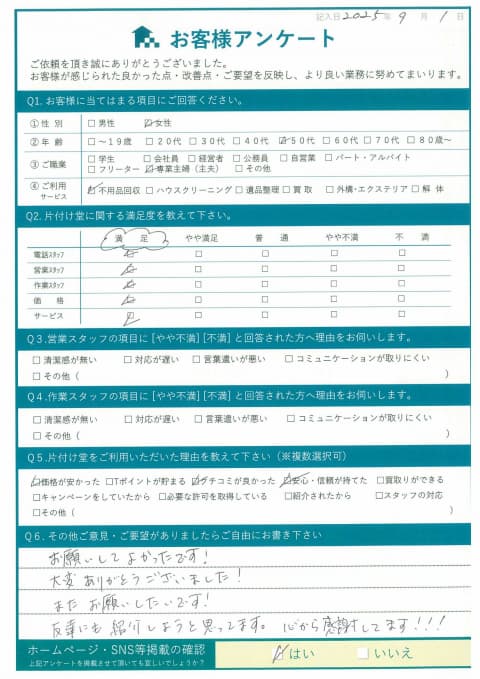 記入日 2025年 9月 1日
お客様アンケート
ご依頼を頂き誠にありがとうございました。
お客様が感じられた良かった点・改善点・ご要望を反映し、より良い業務に努めてまいります。
Q1. お客様に当てはまる項目にご回答ください。
①性 別 □男性 ☑女性
②年 齢 □～19歳 □20代 □30代 □40代 ☑50代 □60代 □70代 □80歳～
③ご職業 □学生 □会社員 □経営者 □公務員 □自営業 □パート・アルバイト
□フリーター ☑専業主婦（主夫） □その他
④ご利用サービス ☑不用品回収 □ハウスクリーニング □遺品整理 □買 取 □外構・エクステリア □解 体
Q2. 片付け堂に関する満足度を教えて下さい。
満 足 やや満足 普 通 やや不満 不 満
電話スタッフ ☑ □ □ □ □
営業スタッフ ☑ □ □ □ □
作業スタッフ ☑ □ □ □ □
価 格 ☑ □ □ □ □
サービス ☑ □ □ □ □
Q3. 営業スタッフの項目に［やや不満］［不満］と回答された方へ理由をお伺いします。
□清潔感が無い □対応が遅い □言葉遣いが悪い □コミュニケーションが取りにくい
□その他（ ）
Q4. 作業スタッフの項目に［やや不満］［不満］と回答された方へ理由をお伺いします。
□清潔感が無い □対応が遅い □言葉遣いが悪い □コミュニケーションが取りにくい
□その他（ ）
Q5. 片付け堂をご利用いただいた理由を教えて下さい（※複数選択可）
☑価格が安かった □Tポイントが貯まる ☑クチコミが良かった ☑安心・信頼が持てた □買取りができる
□キャンペーンをしていたから □必要な許可を取得している □紹介されたから □スタッフの対応
□その他（ ）
Q6. その他ご意見・ご要望がありましたらご自由にお書き下さい
お願いしてよかったです！
大変ありがとうございました！
またお願いしたいです！
友達にも紹介しようと思ってます。心から感謝してます！！！
ホームページ・SNS等掲載の確認 ☑はい □いいえ
上記アンケートを掲載させて頂いても宜しいでしょうか？